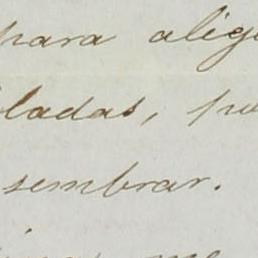 para alig
ladas, pu
sembrar.